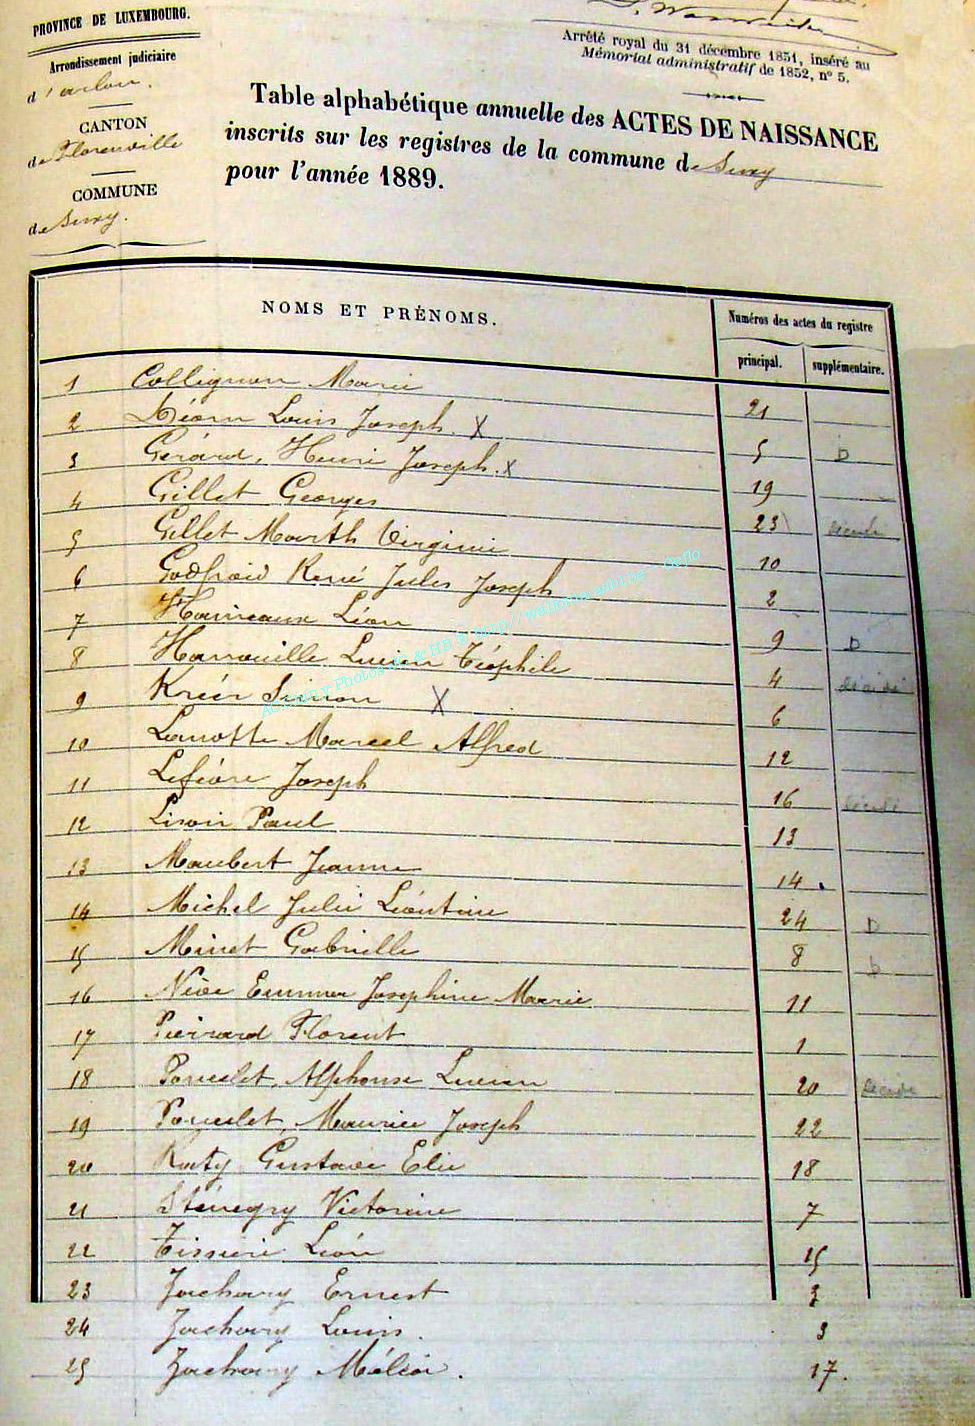 PROVINCE DE LUXEMBOURG.
Arrondissement judiciaire
d'arlon.
CANTON
de Florenville
COMMUNE
de Suxy.
Arrêté royal du 31 décembre 1851, inséré au
Mémorial administratif de 1852, n° 5.
Table alphabétique annuelle des ACTES DE NAISSANCE
inscrits sur les registres de la commune de Suxy
pour l'année 1889.
NOMS ET PRÉNOMS.
Numéros des actes du registre
principal. supplémentaire.
1 Collignon Marie 21
2 Louis Joseph. X 5 D
3 Gérard, Henri Joseph. X 19
4 Gillet Georges 23 décédé
5 Gillet Marth Virginie 10
6 Godfroid René Jules Joseph 2
7 Hainaux Léon 9 D
8 Lucien Téophile 4
9 Simon X 6
10 Lamotte Marcel Alfred 12
11 Lefèvre Joseph 16 décédé
12 Paul 13
13 Maubert Jeanne 14
14 Michel Julie Léontine 24 D
15 Minet Gabrielle 8 D
16 Emma Josephine Marie 11
17 Pierrard Florent 1
18 Poncelet, Alphonse Lucien 20 décédé
19 Poncelet, Maurice Joseph 22
20 Raty Gustave Elie 18
21 Victorine 7
22 Léon 15
23 Zachary Ernest 3
24 Zachary Louis. 3
25 Zachary 17.